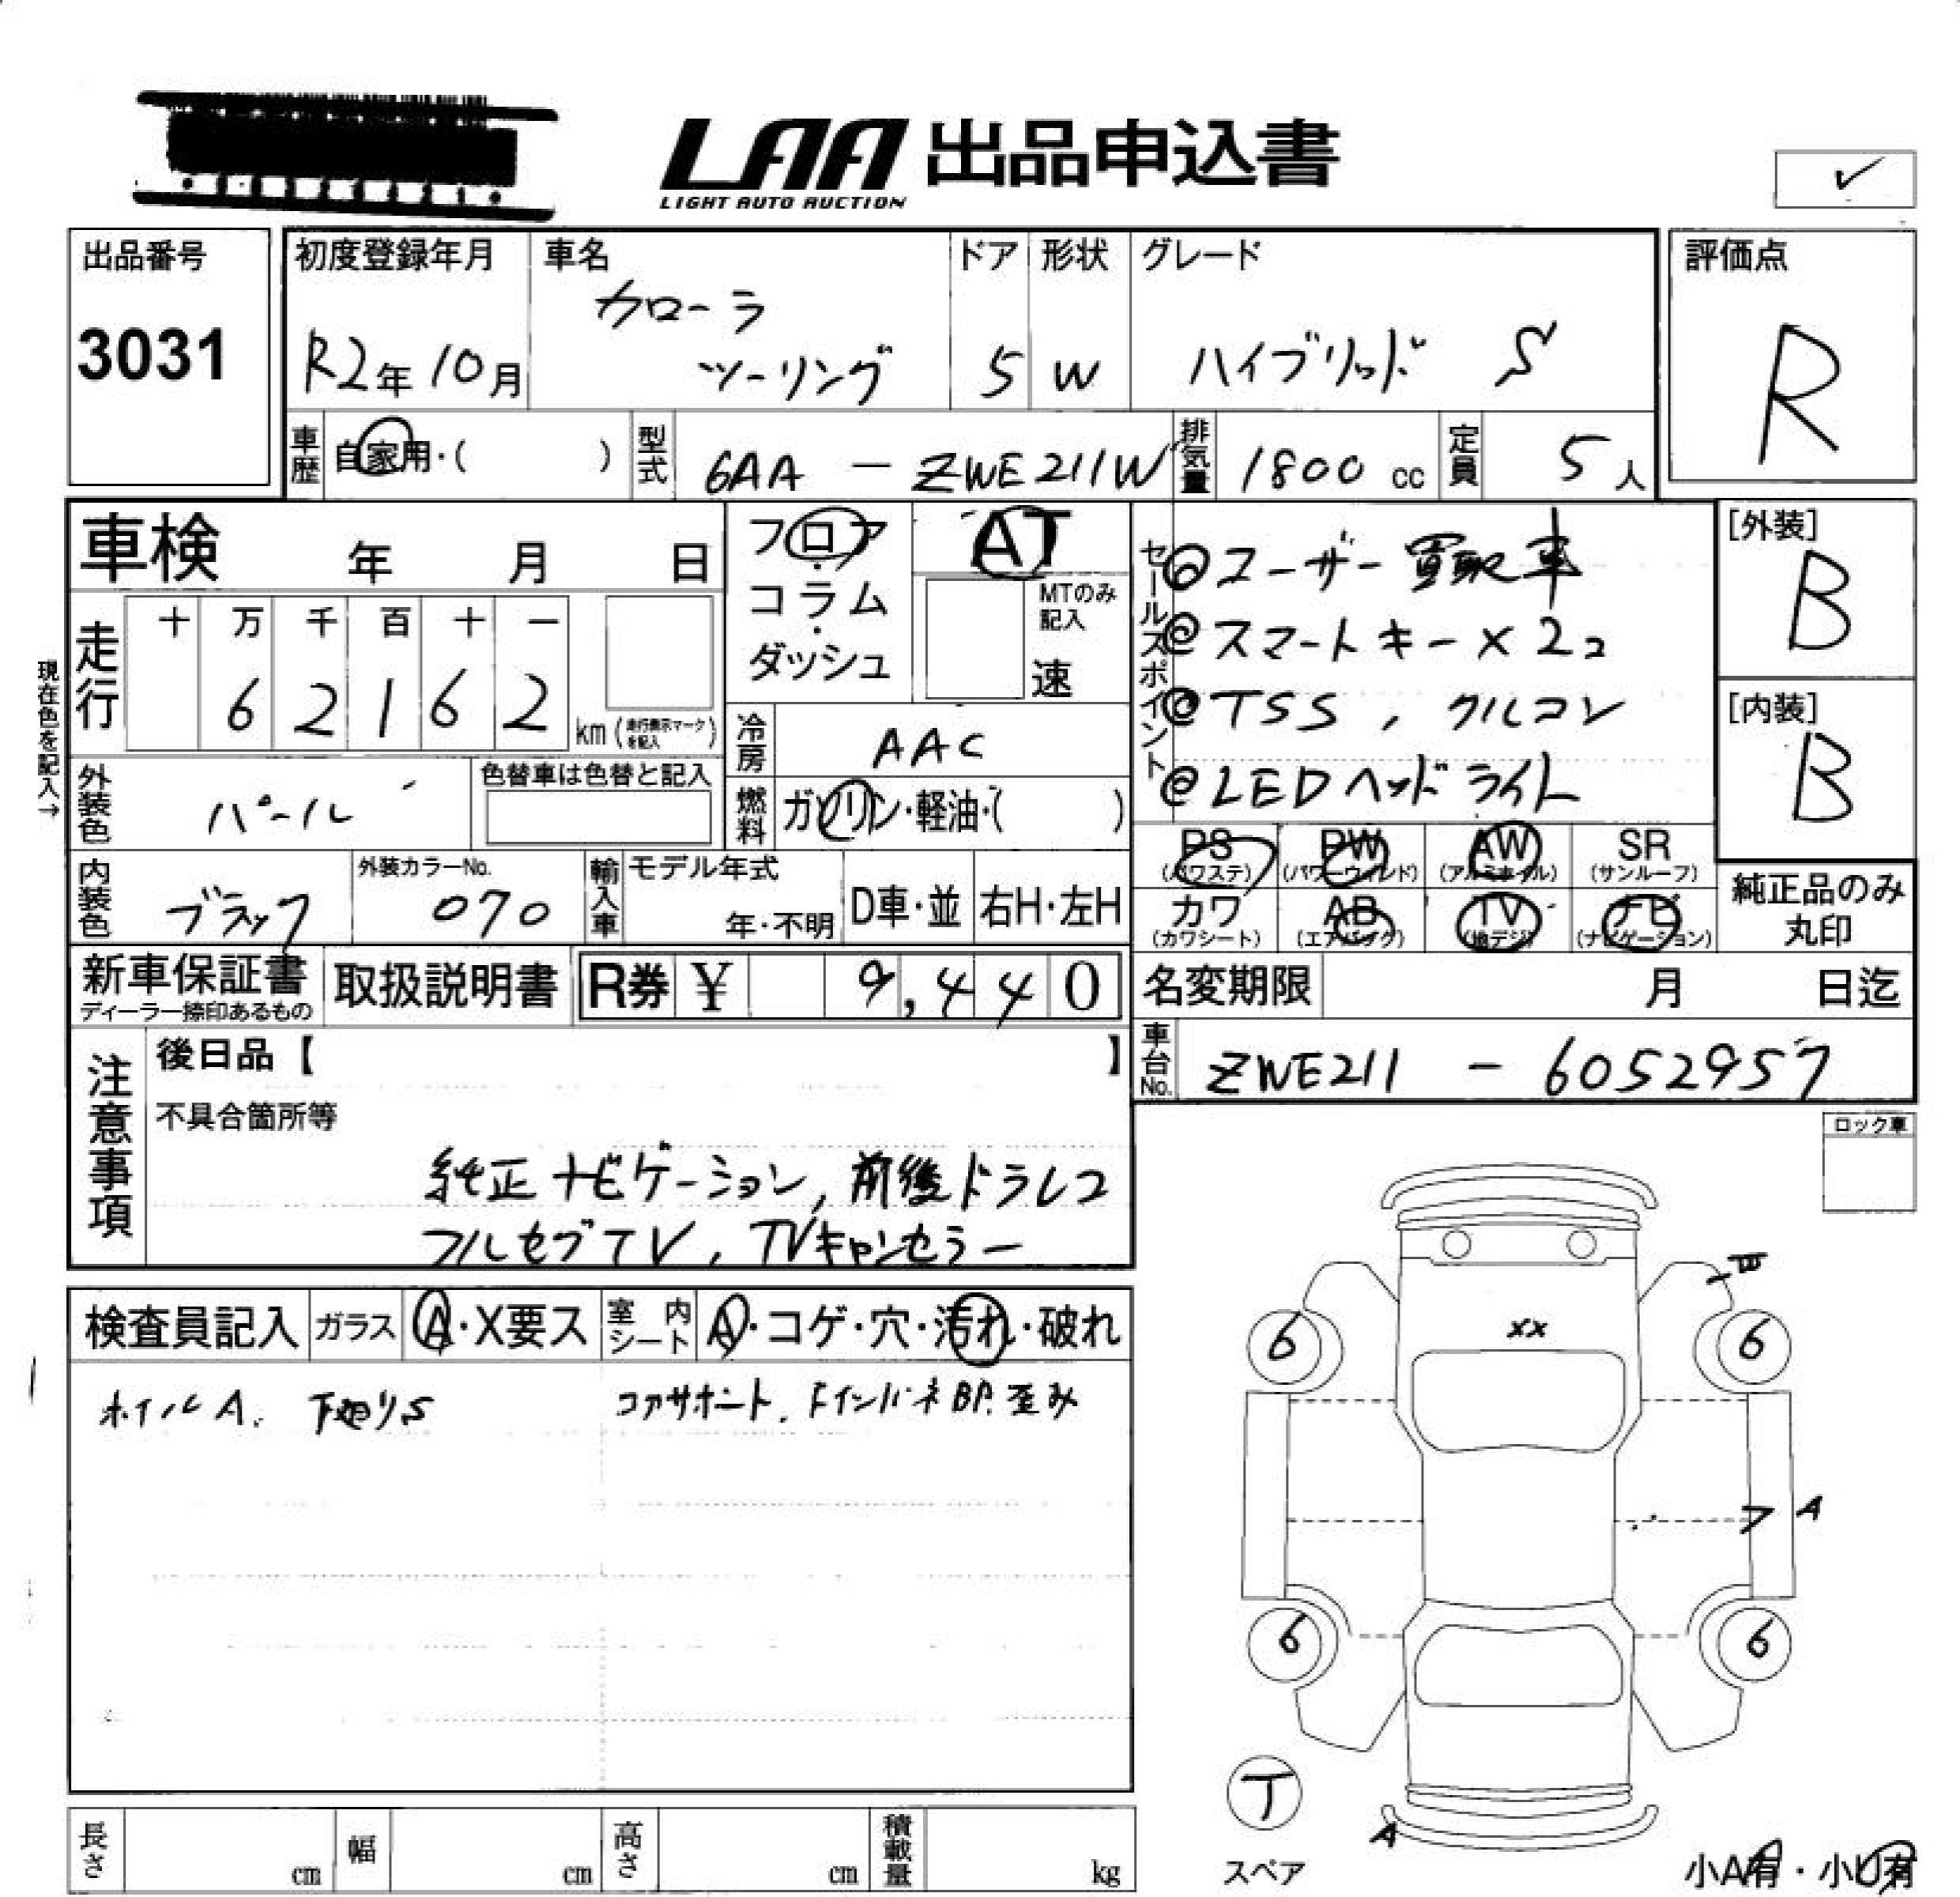 LAA 出品申込書
LIGHT AUTO AUCTION
✓
出品番号
3031
初度登録年月
R2年10月
車名
カローラ
ツーリング
ドア
5
形状
W
グレード
ハイブリッド S
評価点
R
車歴
自家用・( )
型式
6AA - ZWE211W
排気量
1800 cc
定員
5人
車検 年 月 日
フロア・コラム・ダッシュ
AT
MTのみ記入
速
セールスポイント
@ユーザー買取車
@スマートキー×2コ
@TSS, クルコン
@LEDヘッドライト
[外装]
B
[内装]
B
現在色を記入→
走行
十 万 千 百 十 一
6 2 1 6 2
km (走行表示マークを記入)
冷房
AAC
燃料
ガソリン・軽油・( )
外装色
パール
色替車は色替と記入
内装色
ブラック
外装カラーNo.
070
輸入車
モデル年式
年・不明
D車・並
右H・左H
PS (パワステ)
PW (パワーウィンド)
AW (アルミホイル)
SR (サンルーフ)
カワ (カワシート)
AB (エアバック)
TV (地デジ)
ナビ (ナビゲーション)
純正品のみ丸印
新車保証書
ディーラー捺印あるもの
取扱説明書
R券 ¥ 9,440
名変期限 月 日迄
車台No.
ZWE211 - 6052957
注意事項
後日品【 】
不具合箇所等
純正ナビゲーション, 前後ドラレコ
フルセグTV, TVキャンセラー
ロック車
検査員記入
ガラス
A・X要ス
室内シート
A・コゲ・穴・汚れ・破れ
ホイルA. 下廻りS
コアサポート. Fインパネ BP. 歪み
XX
6
6
A
6
6
T
スペア
A
小A有・小U有
長さ cm
幅 cm
高さ cm
積載量 kg